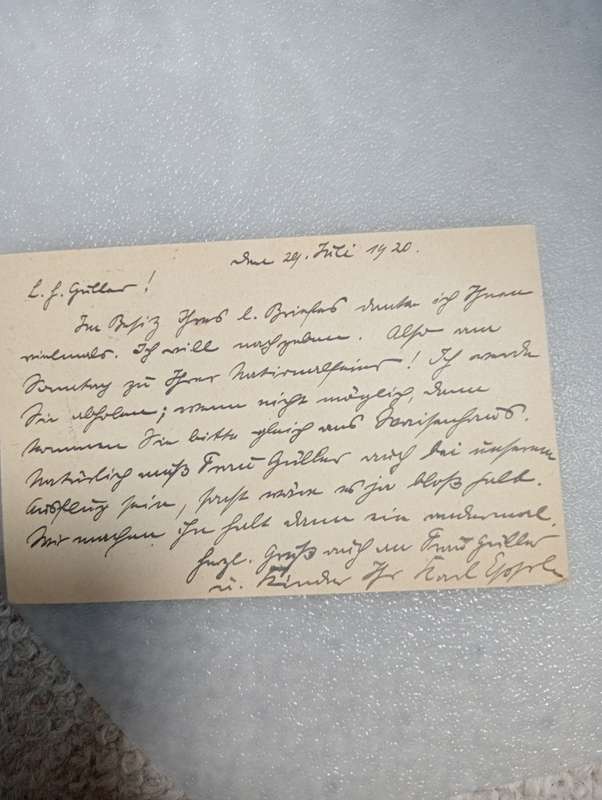 den 29. Juli 1920.
L. H. Güller!
Im Besitz Ihres l. Briefes danke ich Ihnen
vielmals. Ich will nachgeben. Also am
Sonntag zu Ihrer Nationalfeier! Ich werde
Sie abholen; wenn nicht möglich, dann
kommen Sie bitte gleich ans Waisenhaus.
Natürlich muß Frau Güller auch bei unserem
Ausflug sein, sonst wäre es ja bloß halb.
Wir machen ihn halt dann ein andermal.
Herzl. Gruß auch an Frau Güller
u. Kinder Ihr Karl